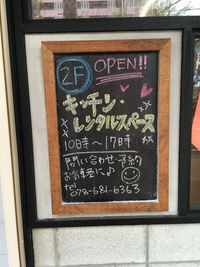 2F OPEN!!
キッチン・
レンタルスペース
10時〜17時
問い合わせ・予約
お気軽に♪
tel 078-681-6353